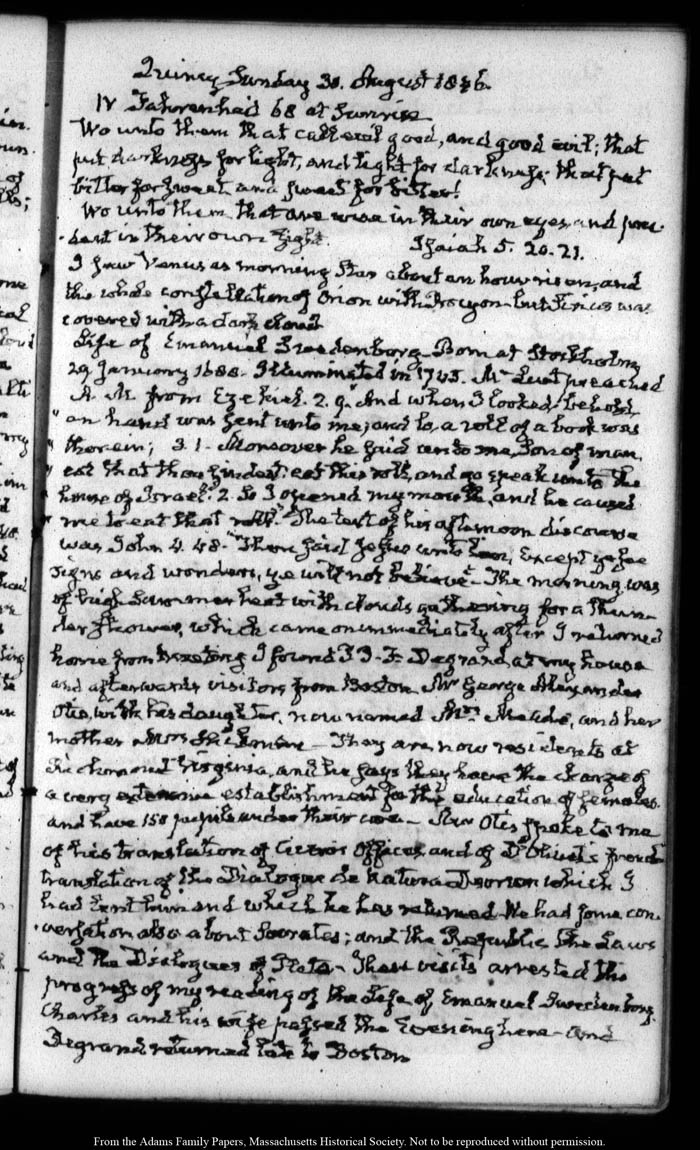 Quincy Sunday 30. August 1846.
IV Fahrenheid 68 at Sunrise
Wo unto them that call evil good, and good evil; that
put darkness for light, and light for darkness; that put
bitter for sweet and sweet for bitter!
Wo unto them that are wise in their own eyes and pru-
dent in their own sight. Isaiah 5. 20. 21.
I saw Venus as morning Star about an hour risen, and
the whole constellation of Orion with Procyon but Sirius was
covered with a dark cloud
Life of Emanuel Swedenborg Born at Stockholm
29 January 1688. Illuminated in 1743. Mr Lunt preached
A. M. from Ezekiel. 2. 9. And when I looked, behold,
"an hand was sent unto me; and lo, a roll of a book was
"therein; 3. 1. Moreover he said unto me, Son of man,
"eat that thou findest: eat this roll, and go speak unto the
"house of Israel: 2. So I opened my mouth, and he caused
"me to eat that roll." The text of his afternoon discourse
was John 4. 48. "Then said Jesus unto him, Except ye see
signs and wonders, ye will not believe". The morning was
of high Summer heat with clouds gathering for a thun-
der shower, which came on immediately after I returned
home from Meeting I found J. J. F. Degrand at my house
and afterwards visitors from Boston Mr George Alexander
Otis, with his daughter, now named Mrs and her
mother Mrs — They are now residents at
Richmond Virginia, and he says they have the charge of
a very extensive establishment for the education of females
and have 150 pupils under their care — Mr Otis spoke to me
of his translation of Ciceros Offices, and of D'Olivet's french
translation of the Dialogue de Natura Deorum which I
had lent him and which he has returned We had some con-
versation also about Socrates; and the Republic the Laws
and the Dialogues of Plato — These visits arrested the
progress of my reading of the Life of Emanuel Swedenborg.
Charles and his wife passed the Evening here — and
Degrand returned late to Boston
From the Adams Family Papers, Massachusetts Historical Society. Not to be reproduced without permission.